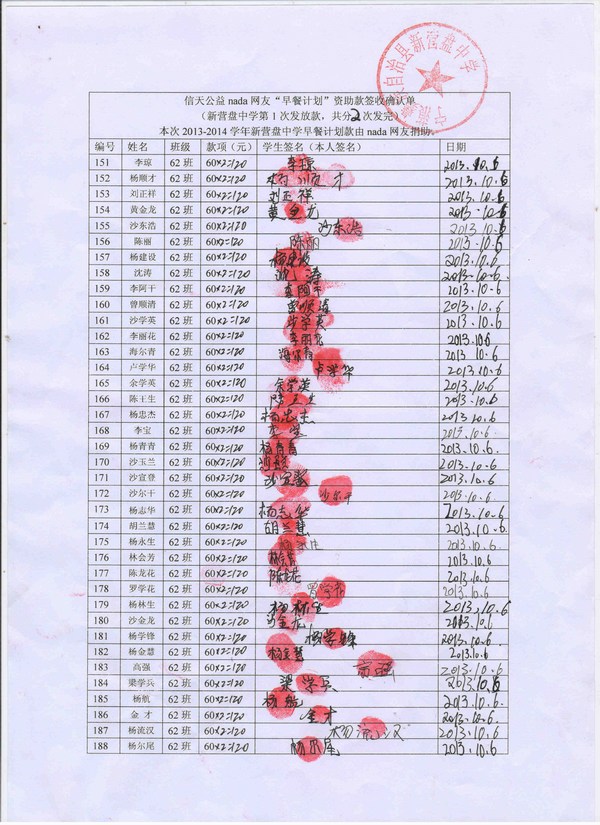 自治县新营盘中学
信天公益 nada 网友“早餐计划”资助款签收确认单
（新营盘中学第 1 次发放款，共分2次发完）
本次 2013-2014 学年新营盘中学早餐计划款由 nada 网友捐助。
编号 姓名 班级 款项（元） 学生签名（本人签名） 日期
151 李琼 62 班 60×2=120 李琼 2013.10.6
152 杨顺才 62 班 60×2=120 杨顺才 2013.10.6
153 刘正祥 62 班 60×2=120 刘正祥 2013.10.6
154 黄金龙 62 班 60×2=120 黄金龙 2013.10.6
155 沙东浩 62 班 60×2=120 沙东浩 2013.10.6
156 陈丽 62 班 60×2=120 陈丽 2013.10.6
157 杨建设 62 班 60×2=120 杨建设 2013.10.6
158 沈涛 62 班 60×2=120 沈涛 2013.10.6
159 李阿干 62 班 60×2=120 李阿干 2013.10.6
160 曾顺清 62 班 60×2=120 曾顺清 2013.10.6
161 沙学英 62 班 60×2=120 沙学英 2013.10.6
162 李丽花 62 班 60×2=120 李丽花 2013.10.6
163 海尔青 62 班 60×2=120 海尔青 2013.10.6
164 卢学华 62 班 60×2=120 卢学华 2013.10.6
165 余学英 62 班 60×2=120 余学英 2013.10.6
166 陈王生 62 班 60×2=120 陈王生 2013.10.6
167 杨忠杰 62 班 60×2=120 杨忠杰 2013.10.6
168 李宝 62 班 60×2=120 李宝 2013.10.6
169 杨青青 62 班 60×2=120 杨青青 2013.10.6
170 沙玉兰 62 班 60×2=120 2013.10.6
171 沙宣登 62 班 60×2=120 沙宣登 2013.10.6
172 沙尔干 62 班 60×2=120 沙尔干 2013.10.6
173 杨志华 62 班 60×2=120 杨志华 2013.10.6
174 胡兰慧 62 班 60×2=120 胡兰慧 2013.10.6
175 杨永生 62 班 60×2=120 2013.10.6
176 林会芳 62 班 60×2=120 2013.10.6
177 陈龙花 62 班 60×2=120 陈龙花 2013.10.6
178 罗学花 62 班 60×2=120 罗学花 2013.10.6
179 杨林生 62 班 60×2=120 杨林生 2013.10.6
180 沙金龙 62 班 60×2=120 沙金龙 2013.10.6
181 杨学锋 62 班 60×2=120 杨学锋 2013.10.6
182 杨金慧 62 班 60×2=120 杨金慧 2013.10.6
183 高强 62 班 60×2=120 高强 2013.10.6
184 梁学兵 62 班 60×2=120 梁学兵 2013.10.6
185 杨航 62 班 60×2=120 杨航 2013.10.6
186 金 才 62 班 60×2=120 金才 2013.10.6
187 杨流汉 62 班 60×2=120 杨流汉 2013.10.6
188 杨尔尾 62 班 60×2=120 杨尔尾 2013.10.6